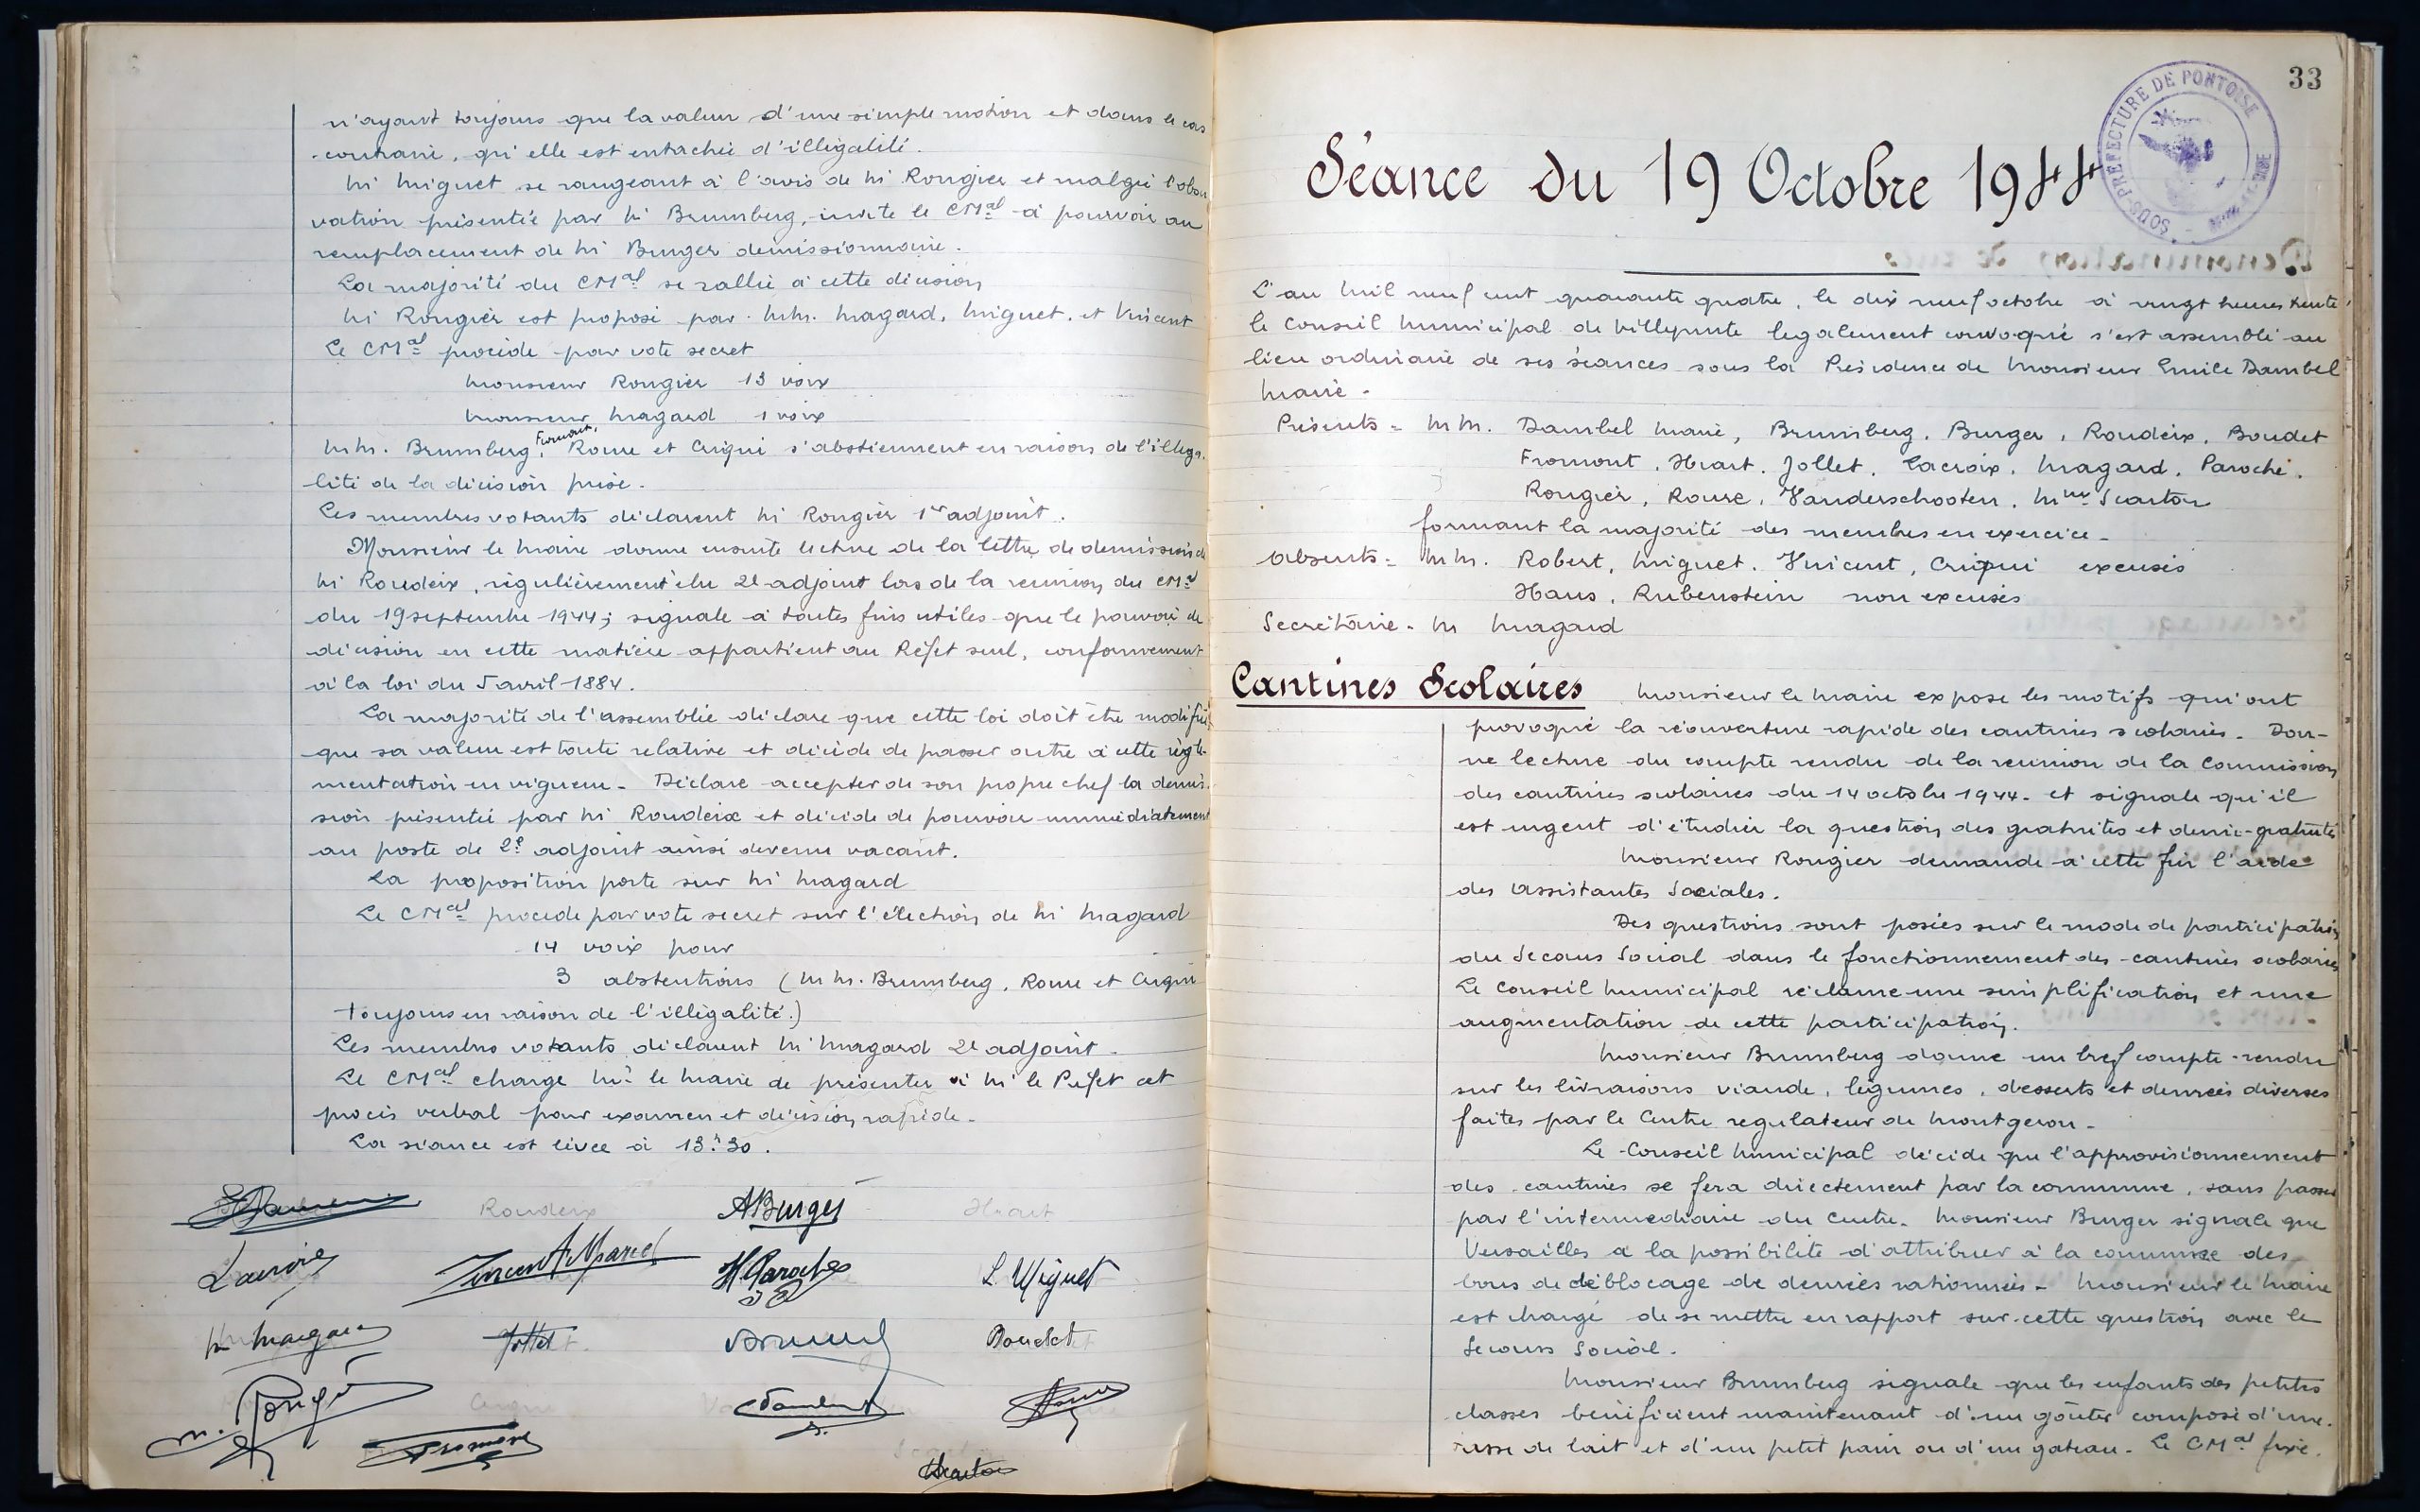 n'ayant toujours que la valeur d'une simple motion et dans le cas
contraire, qu'elle est entachée d'illégalité.
M Miguet se rangeant à l'avis de M Rougier et malgré l'obser
vation présentée par M Brumsberg, invite le CMal à pourvoir au
remplacement de M Burger démissionnaire.
La majorité du CMal se rallie à cette décision
M Rougier est proposé par MM. Magard, Miguet, et Vincent
Le CMal procède par vote secret
Monsieur Rougier 13 voix
Monsieur Magard 1 voix
MM. Brumsberg, Fromont, Roure et Criqui s'abstiennent en raison de l'illéga
lité de la décision prise.
Les membres votants déclarent M Rougier 1er adjoint.
Monsieur le Maire donne ensuite lecture de la lettre de démission de
M Roudeix, régulièrement élu 2e adjoint lors de la réunion du CMal
du 19 septembre 1944; signale à toutes fins utiles que le pouvoir de
décision en cette matière appartient au Préfet seul, conformément
à la loi du 5 avril 1884.
La majorité de l'assemblée déclare que cette loi doit être modifiée
que sa valeur est toute relative et décide de passer outre à cette régle-
mentation en vigueur. Déclare accepter de son propre chef la démis-
sion présentée par M Roudeix et décide de pourvoir immédiatement
au poste de 2e adjoint ainsi devenu vacant.
La proposition porte sur M Magard
Le CMal procède par vote secret sur l'élection de M Magard
14 voix pour
3 abstentions (MM. Brumsberg, Roure et Criqui
toujours en raison de l'illégalité.)
Les membres votants déclarent M Magard 2e adjoint.
Le CMal charge Mr le Maire de présenter à M le Préfet cet
procès verbal pour examen et décision rapide.
La séance est levée à 13h30.
Roudeix A Burger Huart
Lacroix Vincent Marcel H Paroche L. Miguet
Magard Jollet Boudet
M. Rougier Criqui Dambel
Fromont Scarton
33
SOUS-PRÉFECTURE DE PONTOISE
SEINE-ET-OISE
Séance du 19 Octobre 1944
L'an mil neuf cent quarante quatre, le dix neuf octobre à vingt heures trente
le Conseil Municipal de Villepinte légalement convoqué s'est assemblé au
lieu ordinaire de ses séances sous la Présidence de Monsieur Emile Dambel
Maire.
Présents = MM. Dambel Maire, Brumsberg, Burger, Roudeix, Boudet
Fromont, Huart, Jollet, Lacroix, Magard, Paroche,
Rougier, Roure, Vanderschooten, Mme Scarton
formant la majorité des membres en exercice.
Absents = MM. Robert, Miguet, Vincent, Criqui excusés
Haus, Rubenstein non excusés
Secrétaire. M Magard
Cantines Scolaires Monsieur le Maire expose les motifs qui ont
provoqué la réouverture rapide des cantines scolaires. Don-
ne lecture du compte rendu de la réunion de la Commission
des cantines scolaires du 14 octobre 1944. et signale qu'il
est urgent d'étudier la question des gratuités et demie-gratuités
Monsieur Rougier demande à cette fin l'aide
des Assistantes Sociales.
Des questions sont posées sur le mode de participation
du Secours Social dans le fonctionnement des cantines scolaires
Le Conseil Municipal réclame une simplification et une
augmentation de cette participation.
Monsieur Brumsberg donne un bref compte-rendu
sur les livraisons viande, légumes, desserts et denrées diverses
faites par le Centre régulateur de Montgeron.
Le Conseil Municipal décide que l'approvisionnement
des cantines se fera directement par la commune, sans passer
par l'intermédiaire du Centre. Monsieur Burger signale que
Versailles a la possibilité d'attribuer à la commune des
bons de déblocage de denrées rationnées. Monsieur le Maire
est chargé de se mettre en rapport sur cette question avec le
Secours Social.
Monsieur Brumsberg signale que les enfants des petites
classes bénéficient maintenant d'un goûter composé d'une
tasse de lait et d'un petit pain ou d'un gateau. Le CMal fixe.